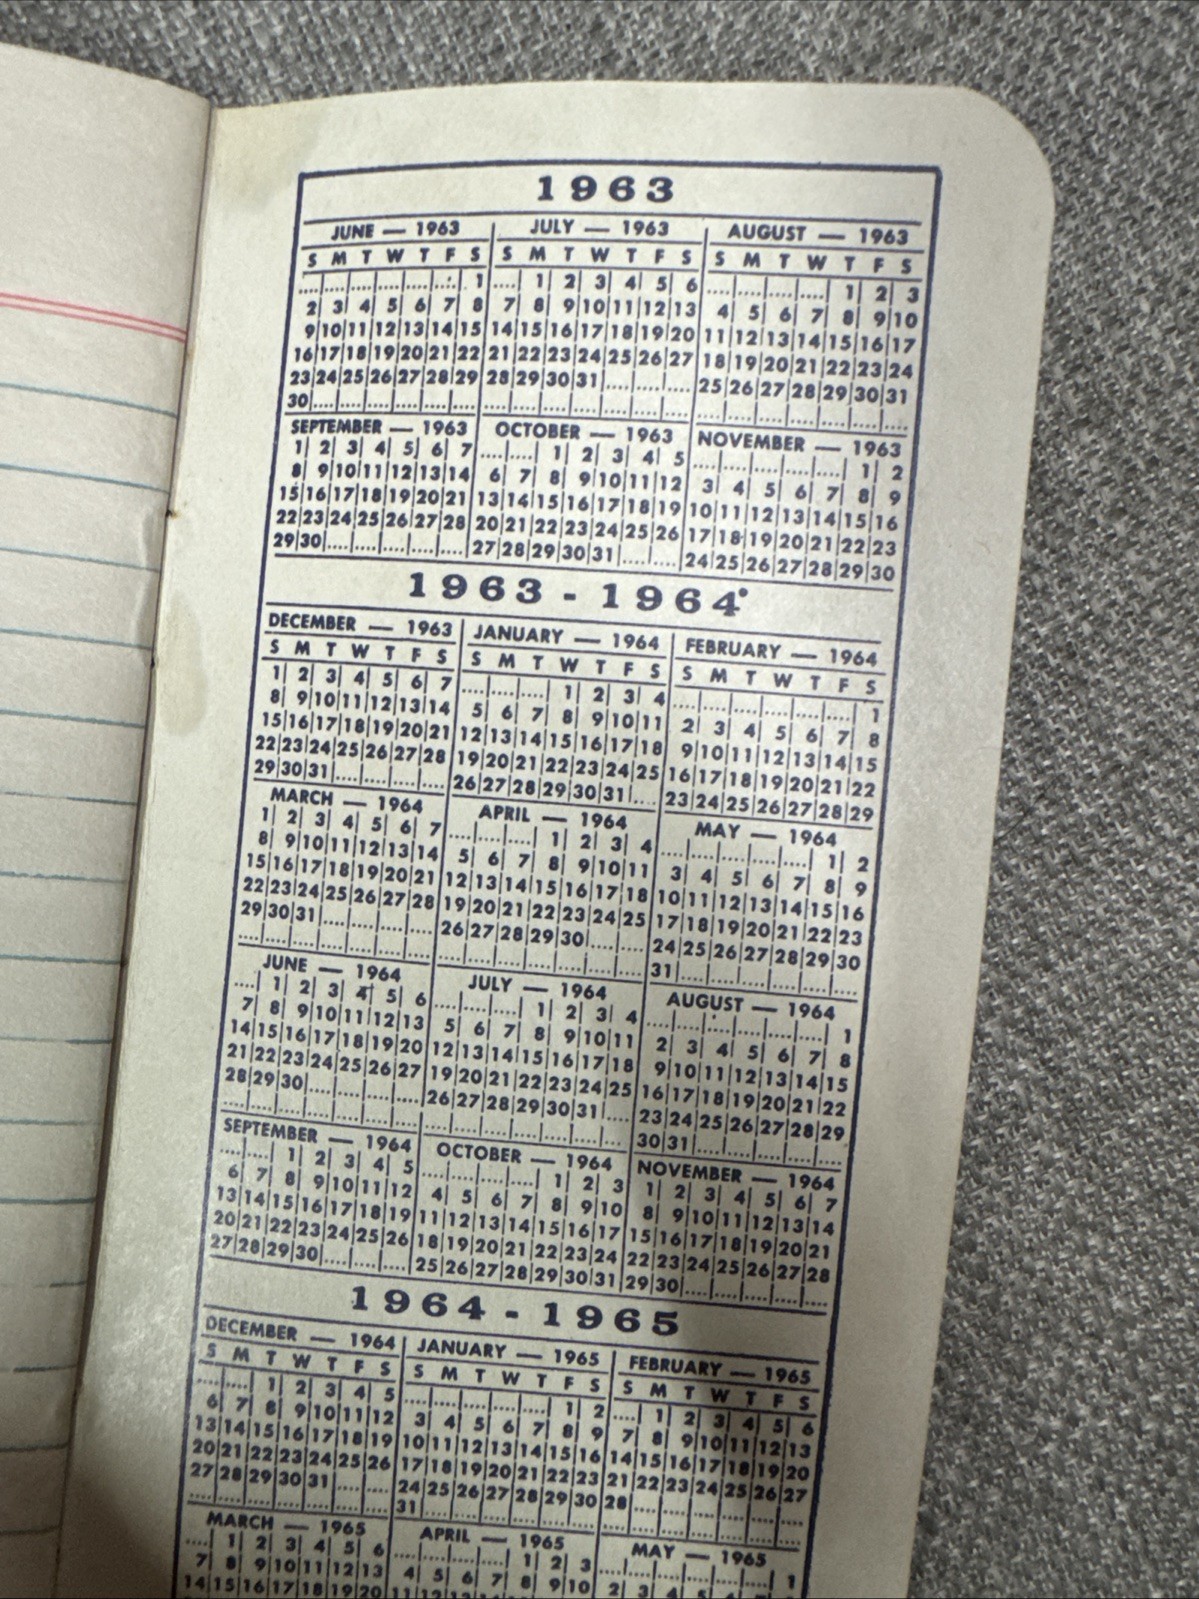 1963
JUNE — 1963
S M T W T F S
1
2 3 4 5 6 7 8
9 10 11 12 13 14 15
16 17 18 19 20 21 22
23 24 25 26 27 28 29
30
JULY — 1963
S M T W T F S
1 2 3 4 5 6
7 8 9 10 11 12 13
14 15 16 17 18 19 20
21 22 23 24 25 26 27
28 29 30 31
AUGUST — 1963
S M T W T F S
1 2 3
4 5 6 7 8 9 10
11 12 13 14 15 16 17
18 19 20 21 22 23 24
25 26 27 28 29 30 31
SEPTEMBER — 1963
1 2 3 4 5 6 7
8 9 10 11 12 13 14
15 16 17 18 19 20 21
22 23 24 25 26 27 28
29 30
OCTOBER — 1963
1 2 3 4 5
6 7 8 9 10 11 12
13 14 15 16 17 18 19
20 21 22 23 24 25 26
27 28 29 30 31
NOVEMBER — 1963
1 2
3 4 5 6 7 8 9
10 11 12 13 14 15 16
17 18 19 20 21 22 23
24 25 26 27 28 29 30
1963 - 1964
DECEMBER — 1963
S M T W T F S
1 2 3 4 5 6 7
8 9 10 11 12 13 14
15 16 17 18 19 20 21
22 23 24 25 26 27 28
29 30 31
JANUARY — 1964
S M T W T F S
1 2 3 4
5 6 7 8 9 10 11
12 13 14 15 16 17 18
19 20 21 22 23 24 25
26 27 28 29 30 31
FEBRUARY — 1964
S M T W T F S
1
2 3 4 5 6 7 8
9 10 11 12 13 14 15
16 17 18 19 20 21 22
23 24 25 26 27 28 29
MARCH — 1964
1 2 3 4 5 6 7
8 9 10 11 12 13 14
15 16 17 18 19 20 21
22 23 24 25 26 27 28
29 30 31
APRIL — 1964
1 2 3 4
5 6 7 8 9 10 11
12 13 14 15 16 17 18
19 20 21 22 23 24 25
26 27 28 29 30
MAY — 1964
1 2
3 4 5 6 7 8 9
10 11 12 13 14 15 16
17 18 19 20 21 22 23
24 25 26 27 28 29 30
31
JUNE — 1964
1 2 3 4 5 6
7 8 9 10 11 12 13
14 15 16 17 18 19 20
21 22 23 24 25 26 27
28 29 30
JULY — 1964
1 2 3 4
5 6 7 8 9 10 11
12 13 14 15 16 17 18
19 20 21 22 23 24 25
26 27 28 29 30 31
AUGUST — 1964
1
2 3 4 5 6 7 8
9 10 11 12 13 14 15
16 17 18 19 20 21 22
23 24 25 26 27 28 29
30 31
SEPTEMBER — 1964
1 2 3 4 5
6 7 8 9 10 11 12
13 14 15 16 17 18 19
20 21 22 23 24 25 26
27 28 29 30
OCTOBER — 1964
1 2 3
4 5 6 7 8 9 10
11 12 13 14 15 16 17
18 19 20 21 22 23 24
25 26 27 28 29 30 31
NOVEMBER — 1964
1 2 3 4 5 6 7
8 9 10 11 12 13 14
15 16 17 18 19 20 21
22 23 24 25 26 27 28
29 30
1964 - 1965
DECEMBER — 1964
S M T W T F S
1 2 3 4 5
6 7 8 9 10 11 12
13 14 15 16 17 18 19
20 21 22 23 24 25 26
27 28 29 30 31
JANUARY — 1965
S M T W T F S
1 2
3 4 5 6 7 8 9
10 11 12 13 14 15 16
17 18 19 20 21 22 23
24 25 26 27 28 29 30
31
FEBRUARY — 1965
S M T W T F S
1 2 3 4 5 6
7 8 9 10 11 12 13
14 15 16 17 18 19 20
21 22 23 24 25 26 27
28
MARCH — 1965
1 2 3 4 5 6
7 8 9 10 11 12 13
14 15 16 17 18 19 20
APRIL — 1965
1 2 3
4 5 6 7 8 9 10
MAY — 1965
1
2 3 4